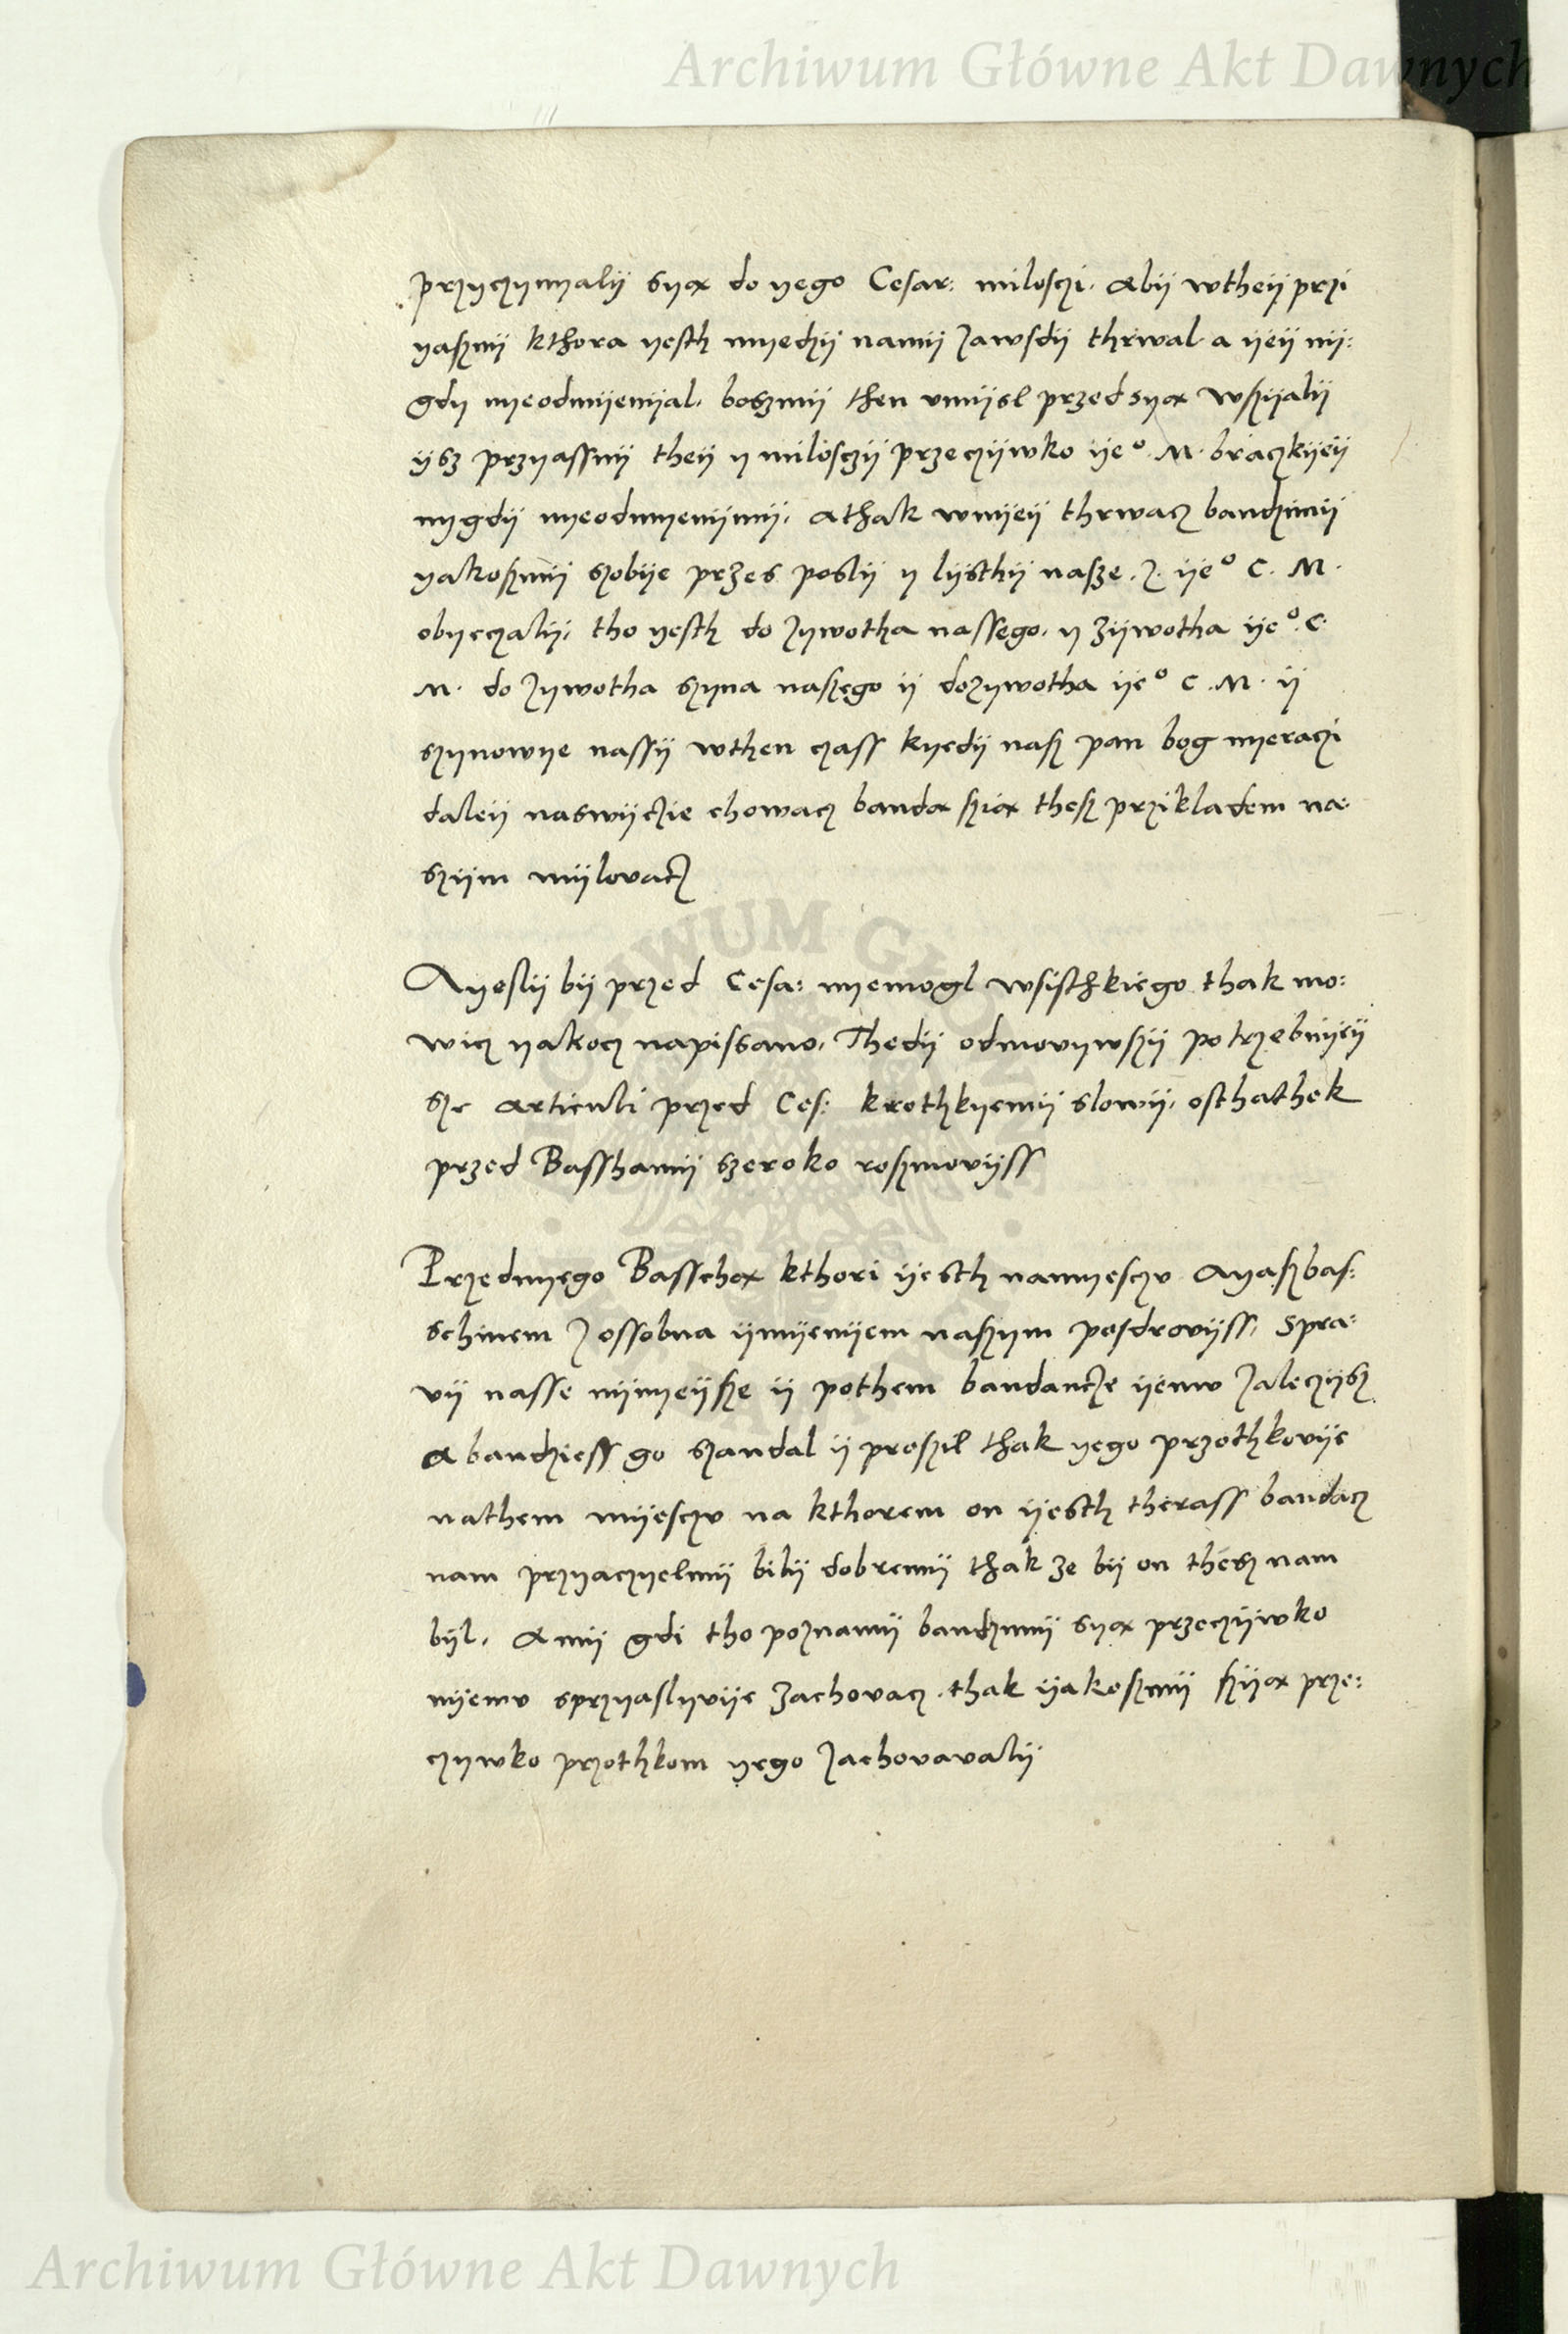 Archiwum Główne Akt Dawnych
przyczynyalÿ syą do yego Cesar: milosczi. abÿ wtheÿ przi
yaszny kthora yesth myedzÿ namÿ zawsdÿ thrwal a ÿeÿ nÿ:
gdy nyeodmÿenÿal. boszmÿ then vmÿsl przed syą wszÿalÿ
ÿsz przyassnÿ theÿ y milosczÿ przeczÿwko ÿeº. M. braczkÿeÿ
nygdÿ nyeodmyenÿmÿ. athak wnÿeÿ thrwacz bandzimÿ
yakoszmÿ szobÿe przes poslÿ y lÿsthÿ nasze. z. ÿeº C. M.
obyeczalÿ. tho yesth do zywotha nassego. y zÿwotha ÿeº. C.
M. do zywotha szyna naszego ÿ dozywotha ÿeº C. M. ÿ
szynowye nassÿ wthen czass kyedÿ nasz pan bog nyeraczi
daleÿ naswÿeczie chowacz banda szią thesz przikladem na:
szÿm mÿlovacz
Ayeslÿ bÿ przed Cesa: nyemogl wsisthkiego thak mo:
wicz yakocz napissano. Thedÿ odmovywszÿ potrzebnÿeÿ
sze articuli przed Ces: krothkyemÿ slowÿ. osthathek
przed Basshamÿ szeroko roszmovÿss
Przednyego Basschą kthori ÿesth namyesczv Ayaszbas:
schinem z ossobna ÿmÿenÿem naszym posdrovÿss. Spra:
vÿ nasse nÿnyeÿsze ÿ pothem bandancze ÿemv zaleczÿsz
a bandziess go szandal ÿ proszil thak yego przothkovÿe
nathem mÿesczv na kthorem on ÿesth therass bandacz
nam przyaczyelmÿ bilÿ dobremÿ thak ze bÿ on thesz nam
bÿl. A mÿ gdi tho poznamÿ bandzmÿ syą przeczÿwko
nÿemv sprzyaslyvÿe zachovacz. thak ÿakoszmÿ szÿą prze:
czywko przothkom yego zachovavalÿ
Archiwum Główne Akt Dawnych